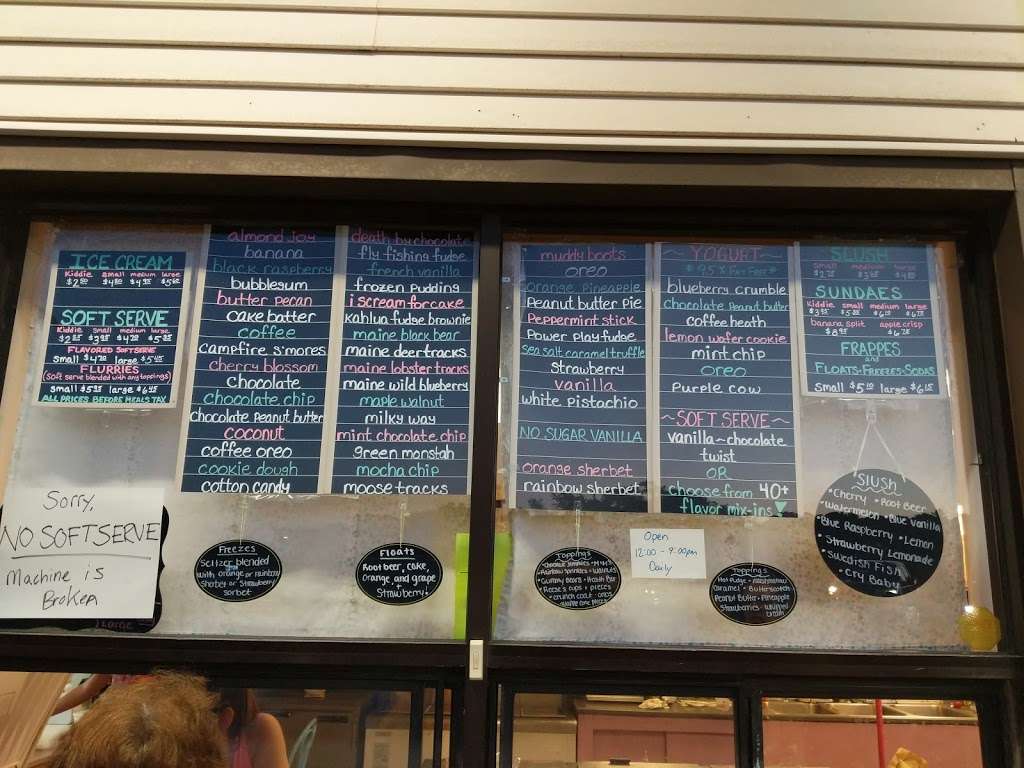 ICE CREAM
Kiddie small medium large
SOFT SERVE
Kiddie small medium large
FLAVORED SOFTSERVE
small large
FLURRIES
(soft serve blended with any toppings)
small large
ALL PRICES BEFORE MEALS TAX
Sorry,
NO SOFTSERVE
Machine is
Broken
almond joy
banana
black raspberry
bubblegum
butter pecan
cake batter
coffee
campfire s'mores
cherry blossom
chocolate
chocolate chip
chocolate peanut butter
coconut
coffee oreo
cookie dough
cotton candy
death by chocolate
fly fishing fudge
french vanilla
frozen pudding
i scream for cake
kahlua fudge brownie
maine black bear
maine deertracks
maine lobster tracks
maine wild blueberry
maple walnut
milky way
mint chocolate chip
green monstah
mocha chip
moose tracks
muddy boots
oreo
orange pineapple
peanut butter pie
peppermint stick
power play fudge
sea salt caramel truffle
strawberry
vanilla
white pistachio
NO SUGAR VANILLA
orange sherbet
rainbow sherbet
~ YOGURT ~
blueberry crumble
chocolate peanut butter
coffee heath
lemon wafer cookie
mint chip
oreo
purple cow
~SOFT SERVE~
vanilla~chocolate
twist
OR
choose from 40+
flavor mix-ins
SLUSH
small medium large
SUNDAES
Kiddie small medium large
banana split apple crisp
FRAPPES
and
FLOATS-FREEZES-SODAS
small large
Freezes
Selzer blended
with orange or rainbow
sherbet or strawberry
sorbet
Floats
Root beer, coke,
orange and grape
+ strawberry!
Toppings
Rainbow sprinkles • walnuts
Gummy Bears • Heath Bar
Reese's cups + pieces
• crunch coat • oreos
Open
12:00 - 9:00pm
Daily
Toppings
Hot Fudge • Marshmallow
Caramel • Butterscotch
Peanut Butter • Pineapple
Strawberries • whipped
cream
Slush
• Cherry • Root Beer
• Watermelon • Blue Vanilla
• Blue Raspberry • Lemon
• Strawberry Lemonade
• Swedish Fish
• Cry Baby